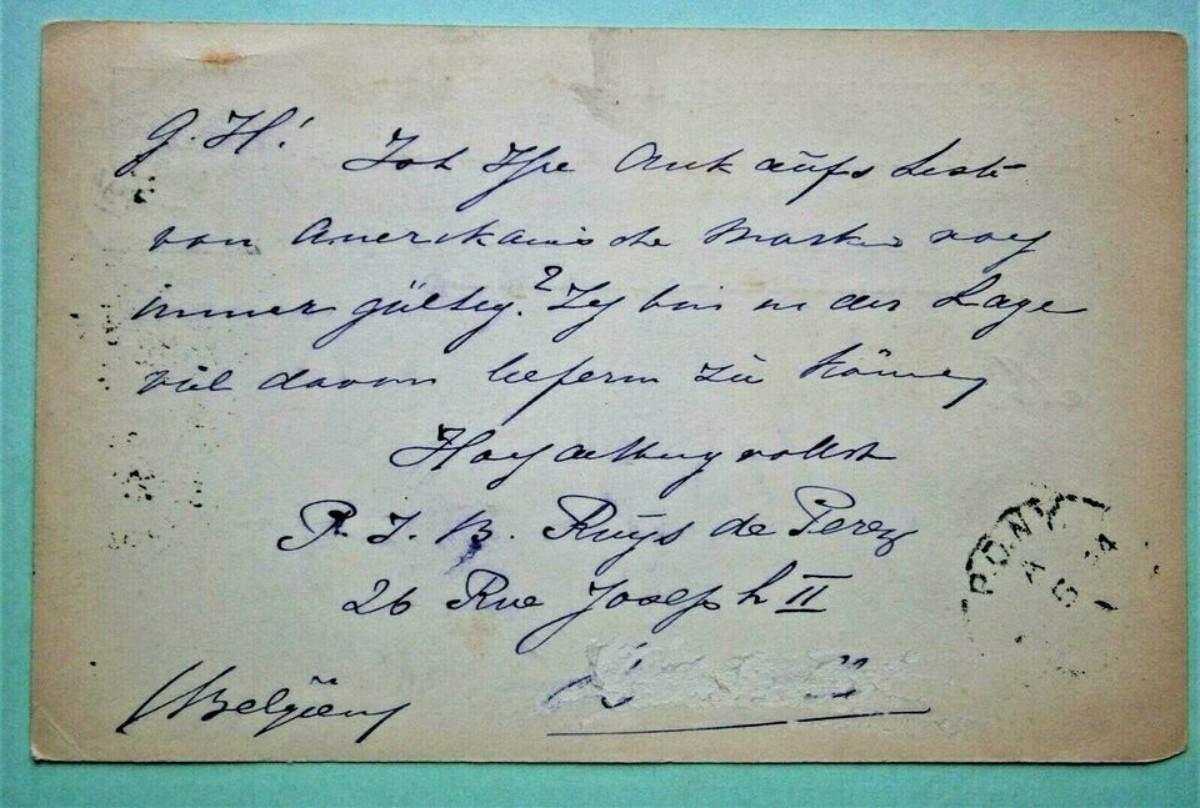 G. H!
Ist Ihre Ankaufs Liste
von Amerikanische Marken noch
immer gültig? Ich bin in der Lage
viel davon liefern zu können
Hochachtungvollst
P. J. B. Ruijs de Perez
26 Rue Joseph II
(Belgien)